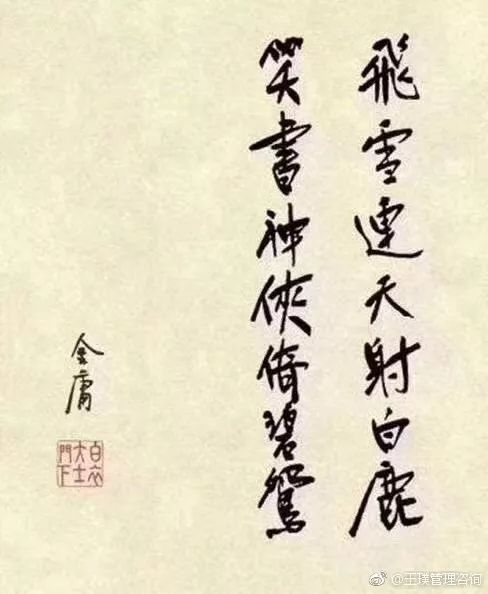 飛雪連天射白鹿
笑書神俠倚碧鴛
金庸
白衣大士門下
@王璞管理咨询